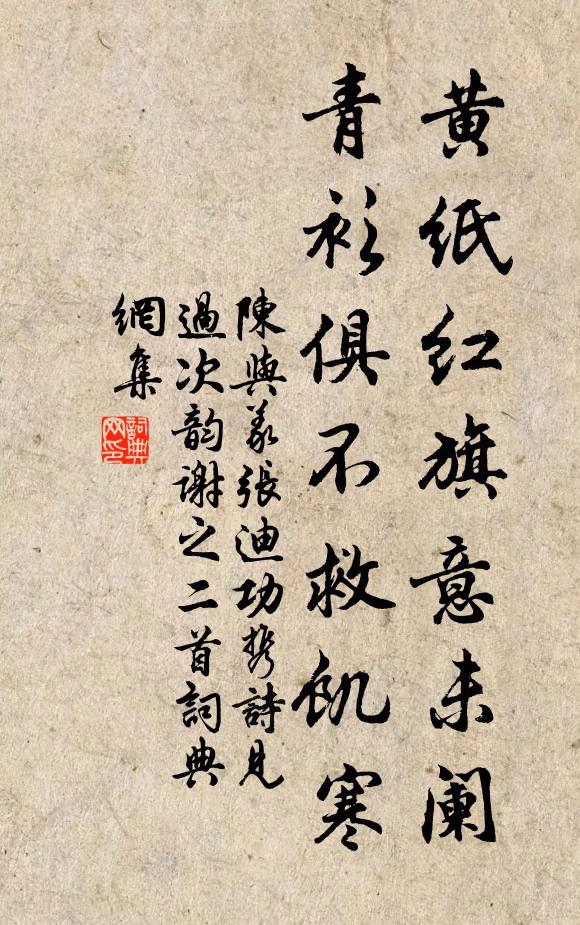 黄纸红旗意未阑
青衫俱不救飢寒
陳與義張迪功携詩見
過次韵謝之二首詞典
網集
詞典
网印